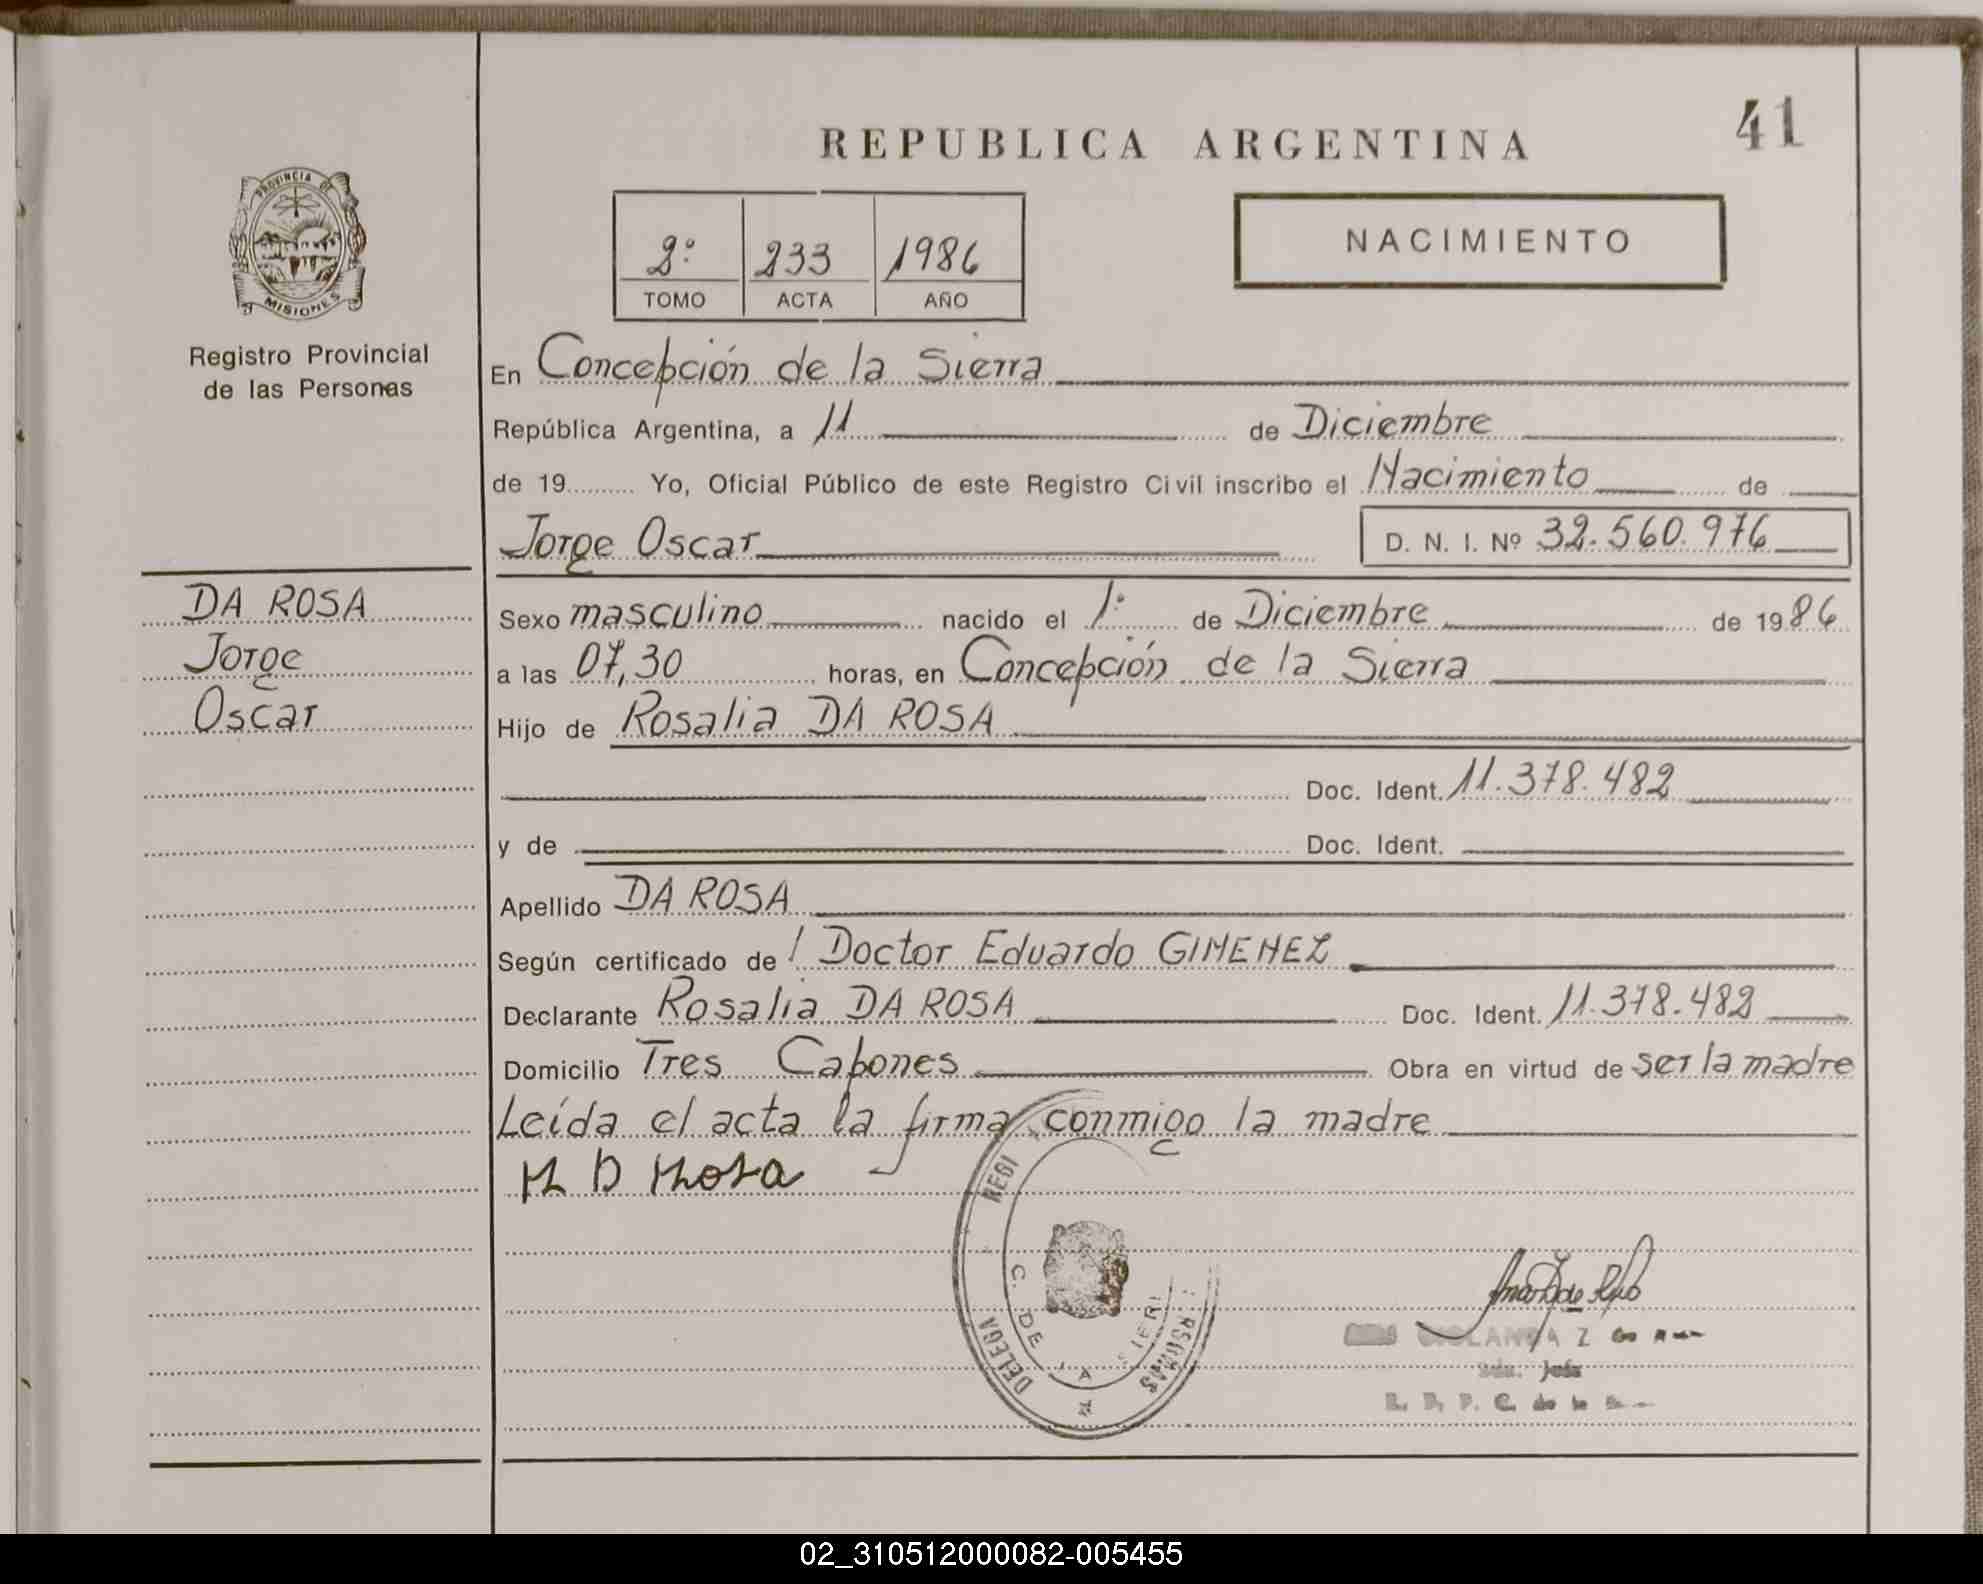 41
REPUBLICA ARGENTINA
PROVINCIA DE
MISIONES
Registro Provincial
de las Personas
2º 233 1986
TOMO ACTA AÑO
NACIMIENTO
En Concepción de la Sierra
República Argentina, a 11 de Diciembre
de 19.......... Yo, Oficial Público de este Registro Civil inscribo el Nacimiento de
Jorge Oscar D. N. I. Nº 32.560.976
DA ROSA
Jorge
Oscar
Sexo masculino nacido el 1º de Diciembre de 1986
a las 07,30 horas, en Concepción de la Sierra
Hijo de Rosalia DA ROSA
Doc. Ident. 11.378.482
y de Doc. Ident.
Apellido DA ROSA
Según certificado de / Doctor Eduardo GIMENEZ
Declarante Rosalia DA ROSA Doc. Ident. 11.378.482
Domicilio Tres Capones Obra en virtud de ser la madre
Leída el acta la firma conmigo la madre
REGI
DELEGA
C. DE
02_310512000082-005455